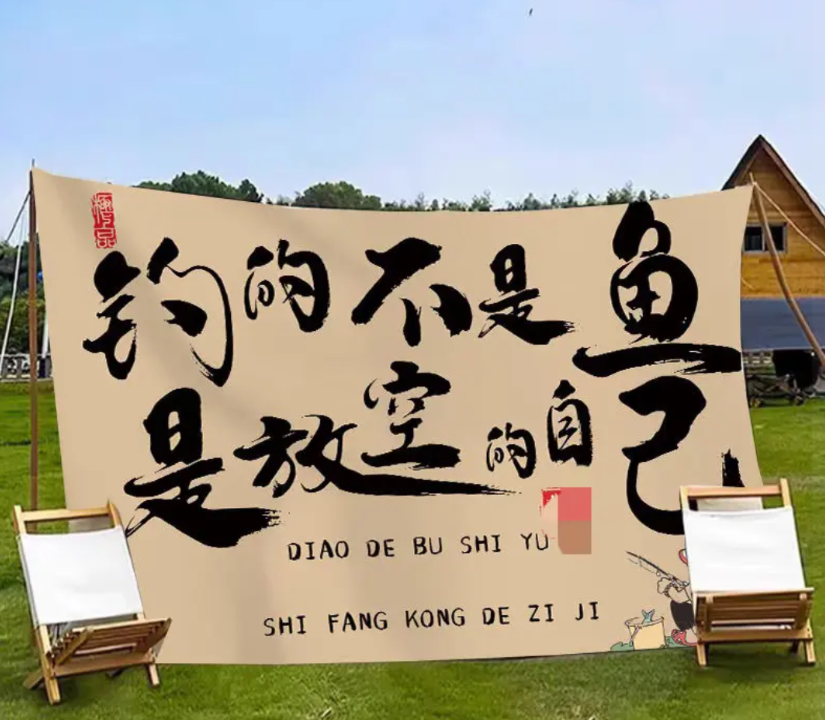 钓的不是鱼
是放空的自己
DIAO DE BU SHI YU
SHI FANG KONG DE ZI JI